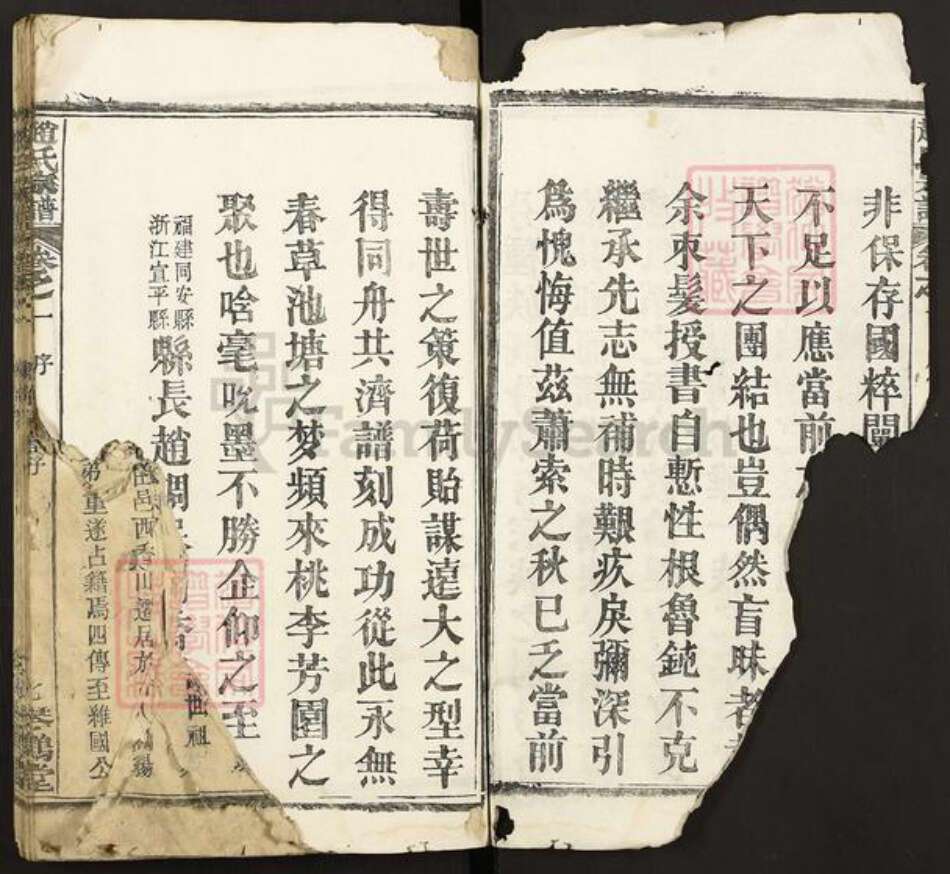 非保存國粹闡
不足以應當前
天下之團結也豈偶然盲昧者
余朿髮授書自慙性根魯鈍不克
繼承先志無補時艱疚戾彌深引
爲愧悔值茲蕭索之秋已乏當前
壽世之策復荷貽謀遠大之型幸
得同舟共濟譜刻成功從此永無
春草池塘之梦頻來桃李芳園之
聚也啥毫吮墨不勝企仰之至
福建同安縣
浙江宣平縣
縣長趙
世祖
邑西
弟重遂占籍焉四傳至雜國公
趙氏宗譜 卷之一 序 七 琴鶴堂
FamilySearch